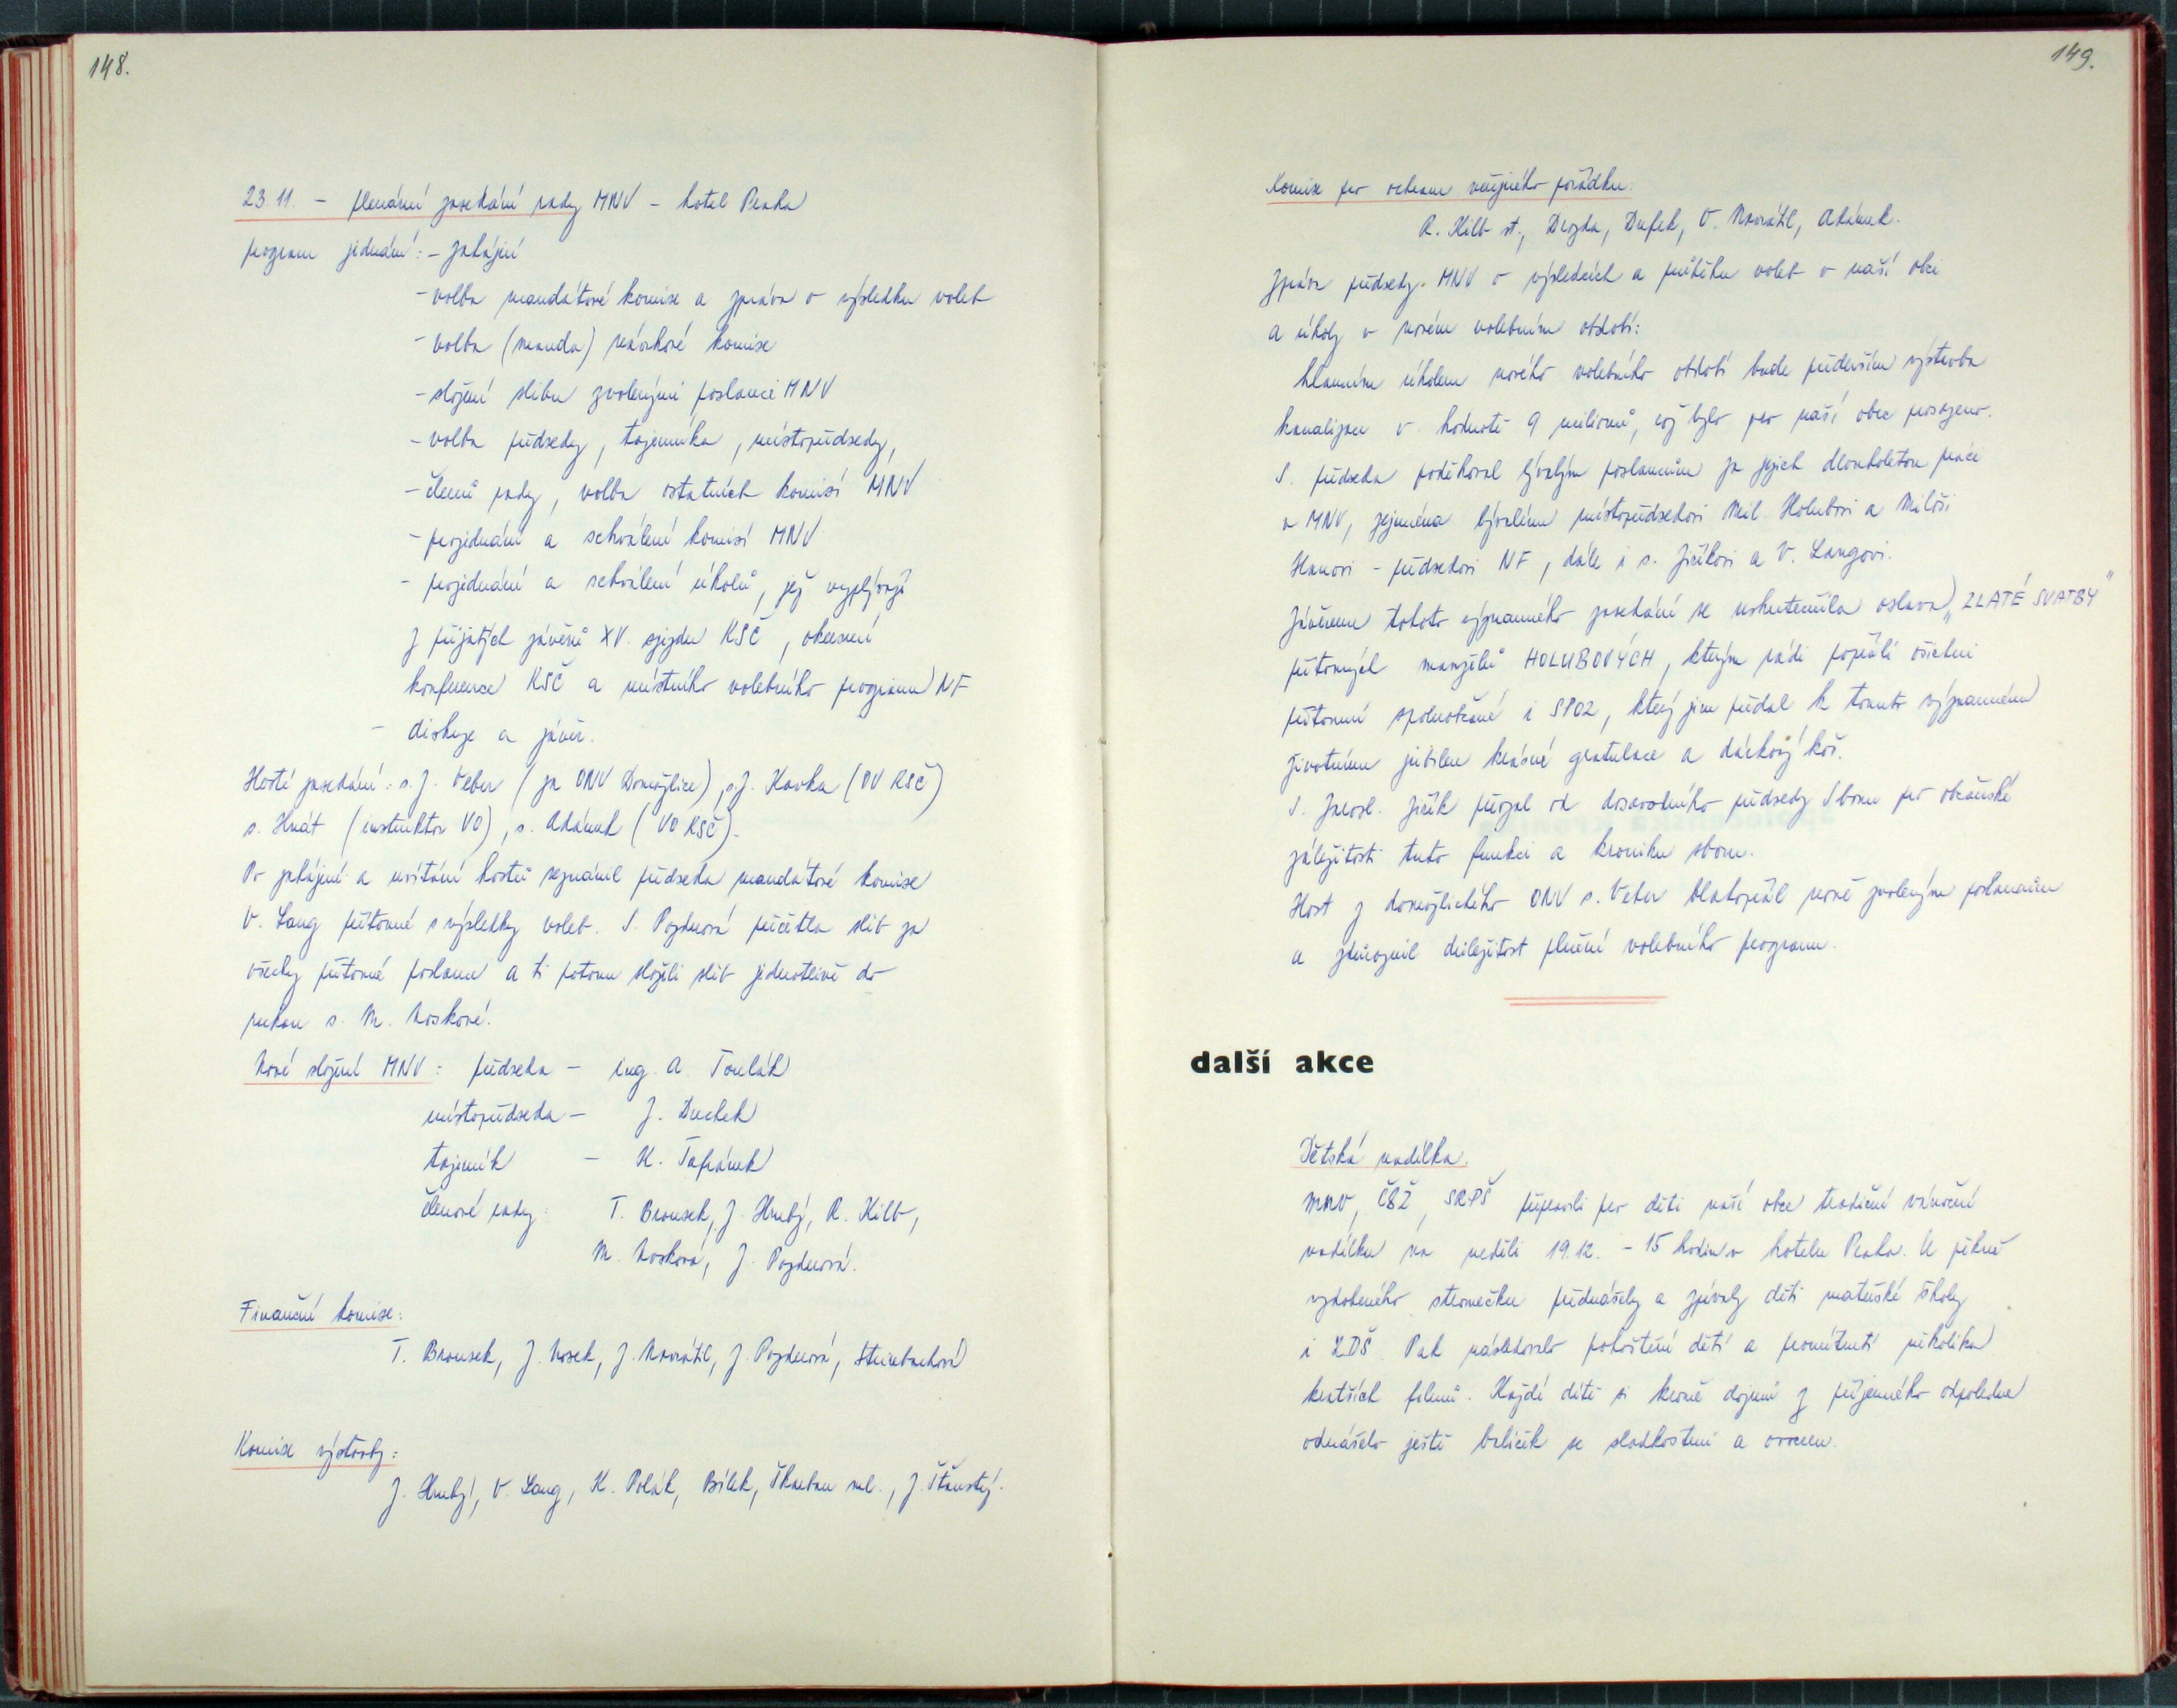 148.
23. 11. - plenární zasedání rady MNV - hotel Praha
program jednání: - zahájení
- volba mandátové komise a zpráva o výsledku voleb
- volba (manda) návrhové komise
- složení slibu zvolenými poslanci MNV
- volba předsedy, tajemníka, místopředsedy,
- členů rady, volba ostatních komisí MNV
- projednání a schválení komisí MNV
- projednání a schválení úkolů, jež vyplývají
z přijatých závěrů XV. sjezdu KSČ, okresní
konference KSČ a místního volebního programu NF
- diskuze a závěr.
Hosté zasedání: s. J. Veber (za ONV Domažlice), s. J. Kavka (OV KSČ)
s. Hnát (instruktor VO), s. Adámek (VO KSČ).
Po zahájení a uvítání hostů seznámil předseda mandátové komise
V. Lang přítomné s výsledky voleb. S. Pozdnová přečetla slib za
všechny přítomné poslance a ti potom složili slib jednotlivě do
rukou s. M. Noskové.
Nové složení MNV: předseda - ing. A. Toulák
místopředseda - J. Duchek
tajemník - K. Šafránek
členové rady: T. Brousek, J. Hrubý, R. Hilb,
M. Nosková, J. Pozdnová.
Finanční komise:
T. Brousek, J. Nosek, J. Navrátil, J. Pozdnová, Steinbachová
Komise výstavby:
J. Hrubý, V. Lang, K. Polák, Bílek, Škarban ml., J. Šťastný.
149.
Komise pro ochranu veřejného pořádku:
R. Hilb st., Drozda, Dufek, V. Navrátil, Adámek.
Zpráva předsedy MNV o výsledcích a průběhu voleb v naší obci
a úkoly v novém volebním období:
hlavním úkolem nového volebního období bude především výstavba
kanalizace v hodnotě 9 milionů, což bylo pro naší obec prosazeno.
S. předseda poděkoval bývalým poslancům za jejich dlouholetou práci
v MNV, zejména bývalému místopředsedovi Mil. Holubovi a Miloši
Hanovi - předsedovi NF, dále i s. Jiříkovi a V. Langovi.
Závěrem tohoto významného zasedání se uskutečnila oslava „ZLATÉ SVATBY"
přítomných manželů HOLUBOVÝCH, kterým rádi popřáli všichni
přítomní spoluobčané i SPOZ, který jim předal k tomuto významnému
životnímu jubileu krásné gratulace a dárkový koš.
S. Jarosl. Jiřík převzal od dosavadního předsedy Sboru pro občanské
záležitosti tuto funkci a kroniku sboru.
Host z domažlického ONV s. Veber blahopřál nově zvoleným poslancům
a zdůraznil důležitost plnění volebního programu.
další akce
Dětská nadílka.
MNV, ČSŽ, SRPŠ připravili pro děti naší obce tradiční vánoční
nadílku na neděli 19. 12. - 15 hodin v hotelu Praha. U pěkně
vyzdobeného stromečku přednášely a zpívaly děti mateřské školy
i ZDŠ. Pak následovalo pohoštění dětí a promítnutí několika
kratších filmů. Každé dítě si kromě dojmů z příjemného odpoledne
odnášelo ještě balíček se sladkostmi a ovocem.